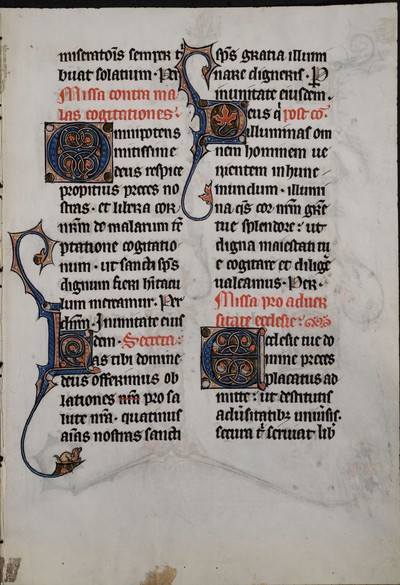 miseratoīs semper t̄
buat solatium · Per
Missa contra ma
las cogitationes ·
Omnipotens
mitissime
deus respice
propitius preces no
stras · et libera cor
nr̄m de malarum tē
ptatione cogitatio
num · ut sancti sp̄s
dignum fieri hītacu
lum mereamur · Per
dn̄m · In unitate eius
dem · Secreta:
Has tibi domine
deus offerimus ob
lationes nr̄a pro sa
lute nr̄a · quatinus
aīas nostras sancti
sp̄s gratia illumi
nare digneris · P
in unitate eiusdem ·
Deus q̄ post cō ·
illuminas om
nem hominem ue
nientem in hunc
mundum · illumi
na q̄s cor nr̄m grē
tue splendore : ut
digna maiestati tu
e cogitare et dilige
ualeamus · Per ·
Missa pro aduer
sitate ecclesie :
Ecclesie tue do
mine preces
placatus ad
mitte : ut destitutis
adūsitatibz uniūsis ·
secura t̄ seruiat lib̄